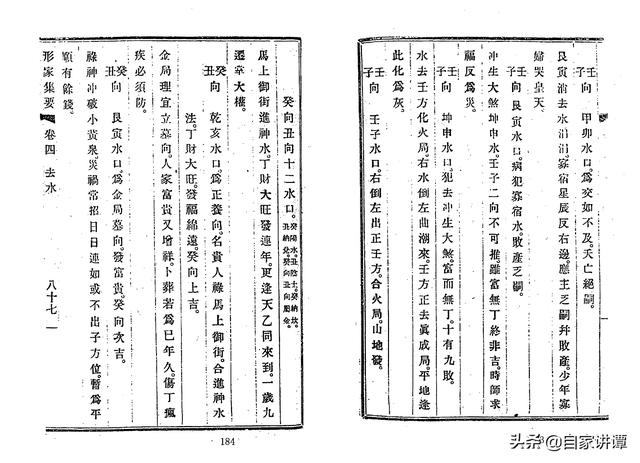 壬子向 甲卯水口。為交如不及。夭亡絕嗣。
艮寅渞去水涓涓。寡宿星辰反右邊。應主乏嗣幷敗產。少年寡
婦哭皇天。
壬子向 艮寅水口。病犯寡宿水。敗產乏嗣。
冲生大煞坤申水。壬子二向不可推。雖富無丁終非吉。時師求
福反為災。
壬子向 坤申水口。犯去冲生大煞。富而無丁。十有九敗。
水去壬方化火局。右水倒左曲潮來。壬方正去眞成局。平地逢
此化為灰。
壬子向 壬子水口。右倒左出正壬方。合火局。山地發。
癸向丑向十二水口。癸陽水。丑陰土。癸納坎。丑納兌。癸向丑向屬金。
馬上御街進神水。丁財大旺發連年。更逢天乙同來到。一歲九
遷掌大權。
癸丑向 乾亥水口。為正養向。名貴人祿馬上御街。合進神水
法。丁財大旺。發福綿遠。癸向上吉。
金局理宜立墓向。人家富貴又增祥。卜葬若為巳年久。傷丁瘋
疾必須防。
癸丑向 艮寅水口。為金局墓向。發富貴。癸向次吉。
祿神冲破小黃泉。災禍常招日日連。如或不出子方位。暫為平
順有餘錢。
形家集要 卷四 去水 八十七
184
头条@自家讲谭